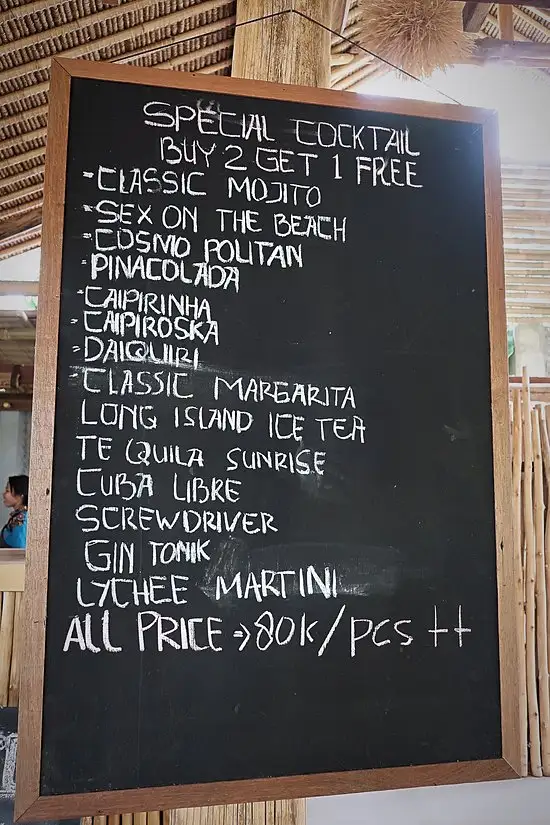 SPECIAL COCKTAIL
BUY 2 GET 1 FREE
-CLASSIC MOJITO
-SEX ON THE BEACH
-COSMO POLITAN
-PINACOLADA
-CAIPIRINHA
-CAIPIROSKA
-DAIQUIRI
-CLASSIC MARGARITA
LONG ISLAND ICE TEA
TE QUILA SUNRISE
CUBA LIBRE
SCREWDRIVER
GIN TONIK
LYCHEE MARTINI
ALL PRICE => 80K/PCS ++